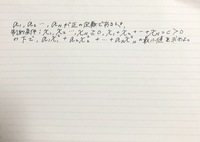 a₁, a₂ …, aₙ が正の定数であるとき,
制約条件: x₁, x₂ …, xₙ ≧ 0, x₁ + x₂ + … + xₙ = c > 0
の下で, a₁x₁² + a₂x₂² + … + aₙxₙ² の最小値を求めよ.